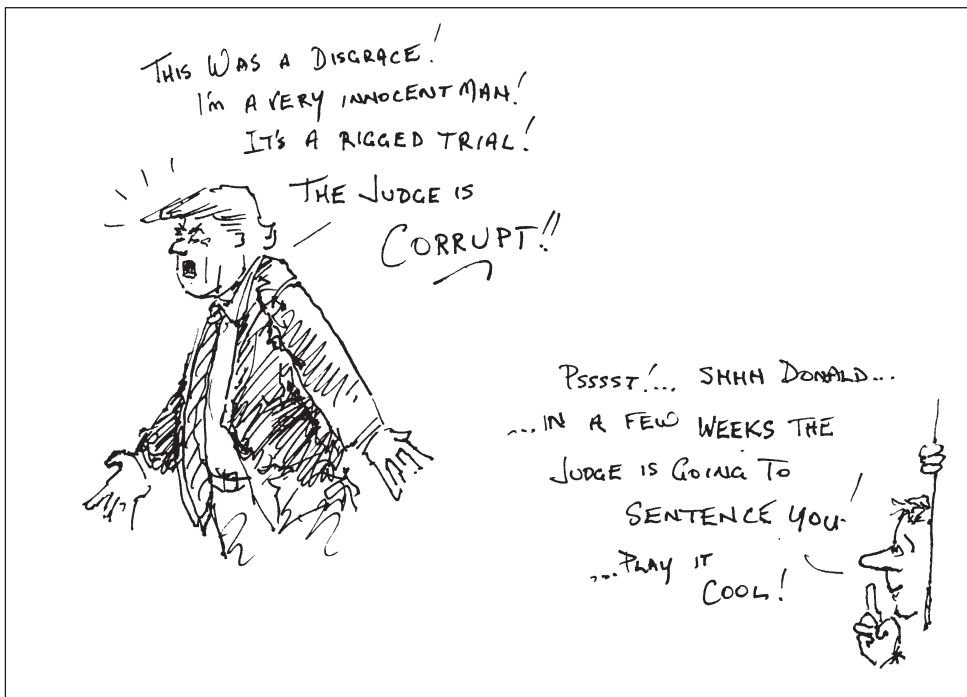 THIS WAS A DISGRACE!
I'm A VERY INNOCENT MAN!
IT'S A RIGGED TRIAL!
THE JUDGE IS
CORRUPT!!
PSSSST!... SHHH DONALD...
...IN A FEW WEEKS THE
JUDGE IS GOING TO
SENTENCE YOU!
...PLAY IT
COOL!